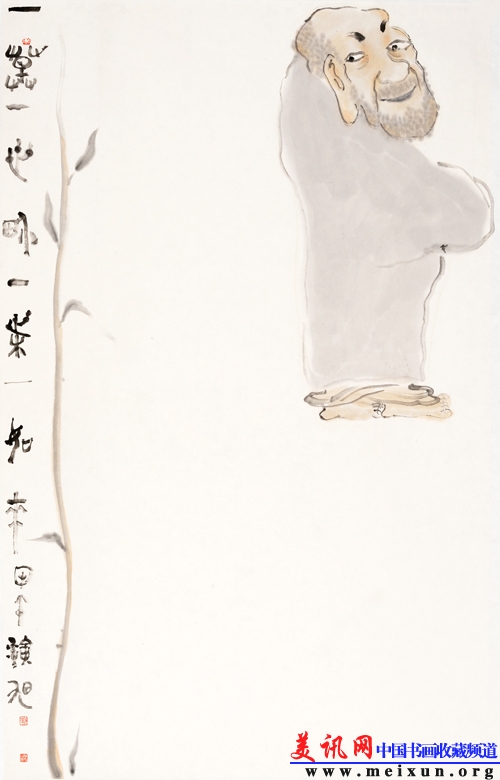 一花一世界一葉一如來甲午
美讯网中国书画收藏频道
www.meixun.org